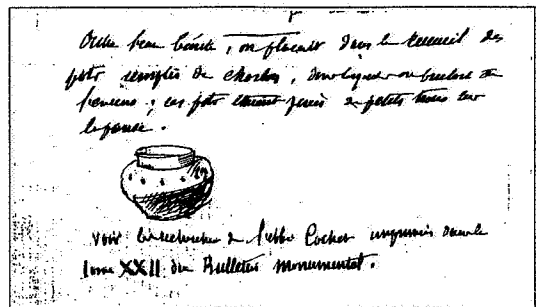 Outre l'eau bénite, on plaçait dans le cercueil des
pots remplis de charbon, dans lequel on brulait de
l'encens ; ces pots étaient percés de petits trous sur
la panse.
Voir les recherches de l'abbé Cochet imprimées dans le
tome XXII du Bulletin monumental.